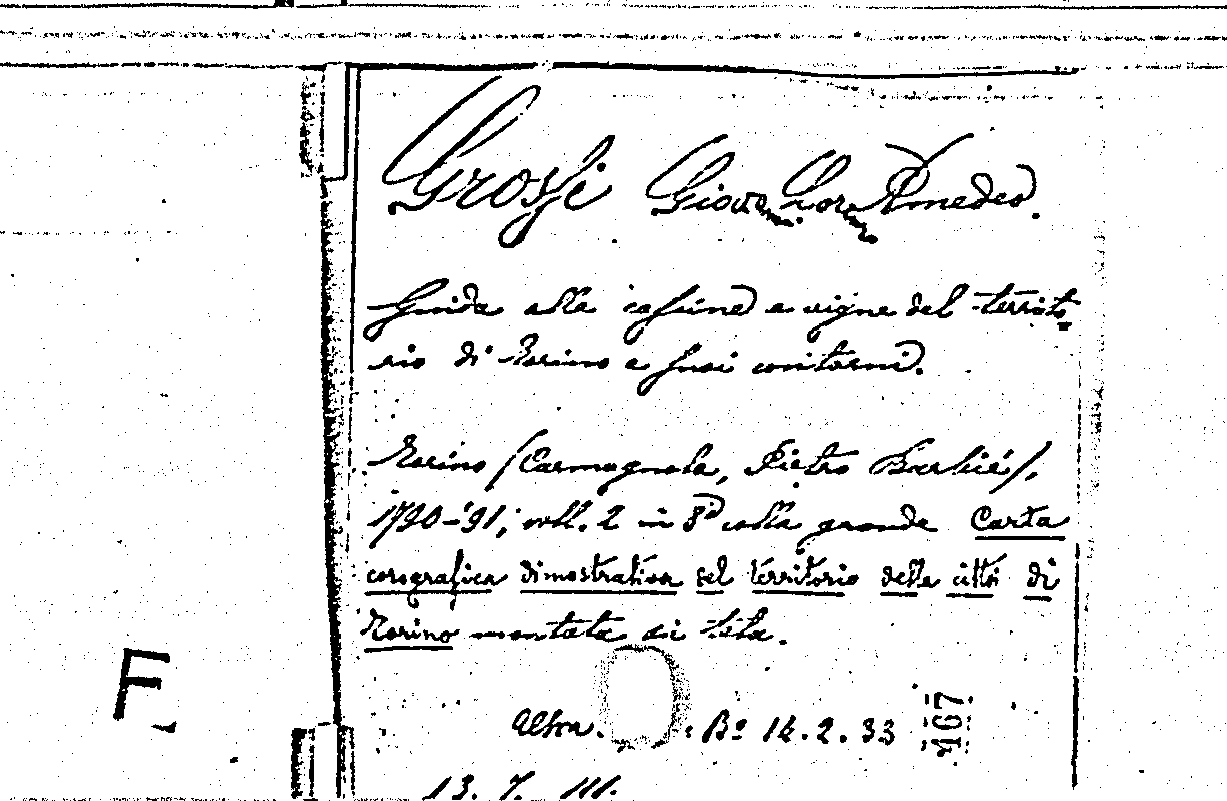 Grossi Giovanni Lorenzo Amedeo.
Guida alle cassine e vigne del territo=
rio di Torino e suoi contorni.
Torino (Carmagnola, Pietro Barbié),
1790-'91; voll. 2 in 8º colla grande Carta
corografica dimostrativa del territorio della città di
Torino montata in tela.
Altra. Bº 14.2.33
167
13. 7. III.
F